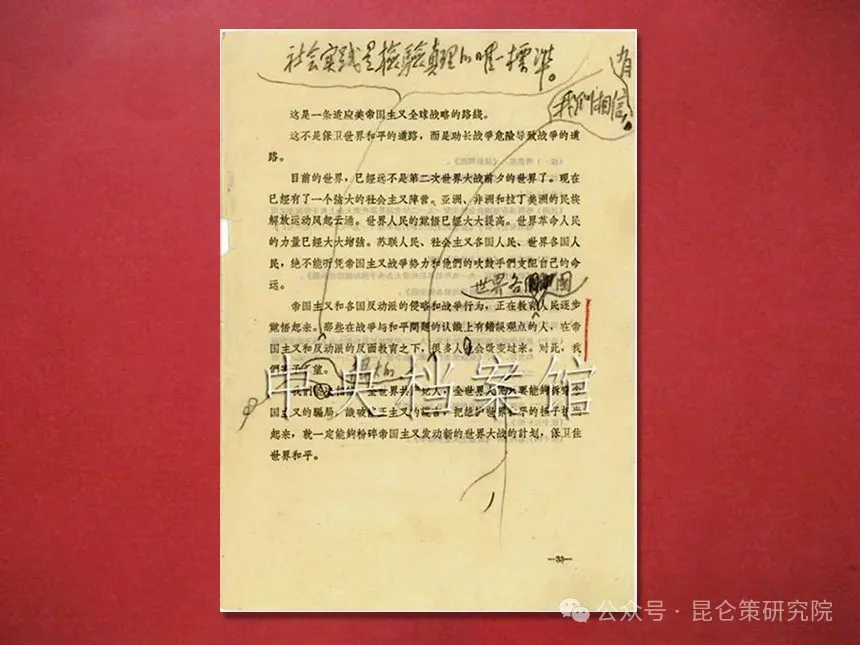 社会实践是檢驗真理的唯一標準。
有
我们相信,
这是一条适应美帝国主义全球战略的路线。
这不是保卫世界和平的道路，而是助长战爭危险导致战爭的道
路。
目前的世界，已經远不是第二次世界大战前夕的世界了。現在
已經有了一个強大的社会主义陣营。亚洲、非洲和拉丁美洲的民族
解放运动风起云涌。世界人民的觉悟已經大大提高。世界革命人民
的力量已經大大增強。苏联人民、社会主义各国人民、世界各国人
民，绝不能听凭帝国主义战爭势力和他們的吹鼓手們支配自己的命
运。
世界各
帝国主义和各国反动派的侵略和战爭行为，正在教育人民逐步
觉悟起来。那些在战爭与和平問題的认識上有錯誤观点的人，在帝
国主义和反动派的反面教育之下，很多人会改变过来。对此，我
望。
中央档案馆
全世界共
国主义的騙局，識破
起来，就一定能夠粉碎帝国主义发动新的世界大战的計划，保卫住
世界和平。
—33—
公众号·昆仑策研究院